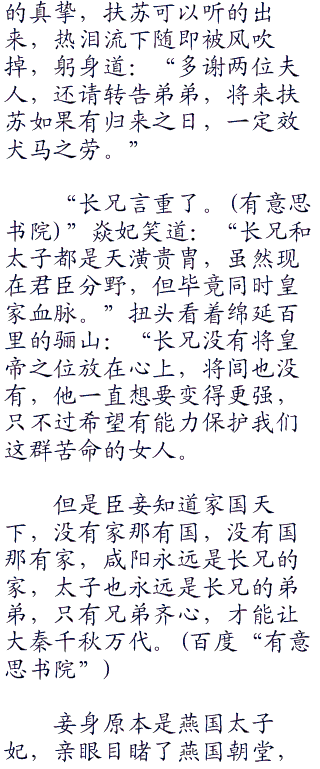 的真挚，扶苏可以听的出
来，热泪流下随即被风吹
掉，躬身道：“多谢两位夫
人，还请转告弟弟，将来扶
苏如果有归来之日，一定效
犬马之劳。”
“长兄言重了。(有意思
书院)”焱妃笑道：“长兄和
太子都是天潢贵胄，虽然现
在君臣分野，但毕竟同时皇
家血脉。”扭头看着绵延百
里的骊山：“长兄没有将皇
帝之位放在心上，将闾也没
有，他一直想要变得更强，
只不过希望有能力保护我们
这群苦命的女人。
但是臣妾知道家国天
下，没有家那有国，没有国
那有家，咸阳永远是长兄的
家，太子也永远是长兄的弟
弟，只有兄弟齐心，才能让
大秦千秋万代。(百度“有意
思书院”)
妾身原本是燕国太子
妃，亲眼目睹了燕国朝堂，